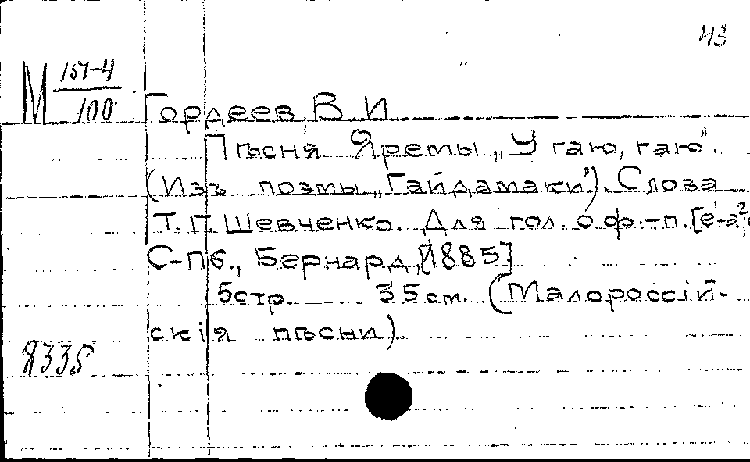 из
М 157-4
100
Гордеев В И
Пѣсня Яремы „У гаю, гаю".
(Изъ поэмы „Гайдамаки"). Слова
Т. Г. Шевченко. Для гол. с ф.-п. [е-а²]
С-Пб., Бернард, [1885]
5стр. 35см. (Малороссій-
скія пѣсни)
8335